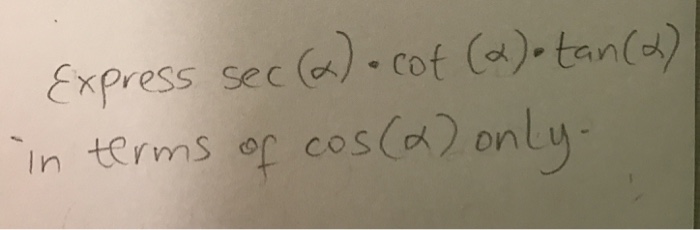 Express sec(α)•cot(α)•tan(α)
in terms of cos(α) only.